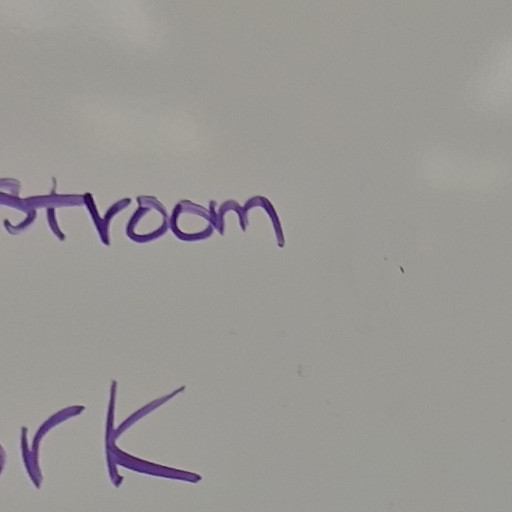 stroom
ork